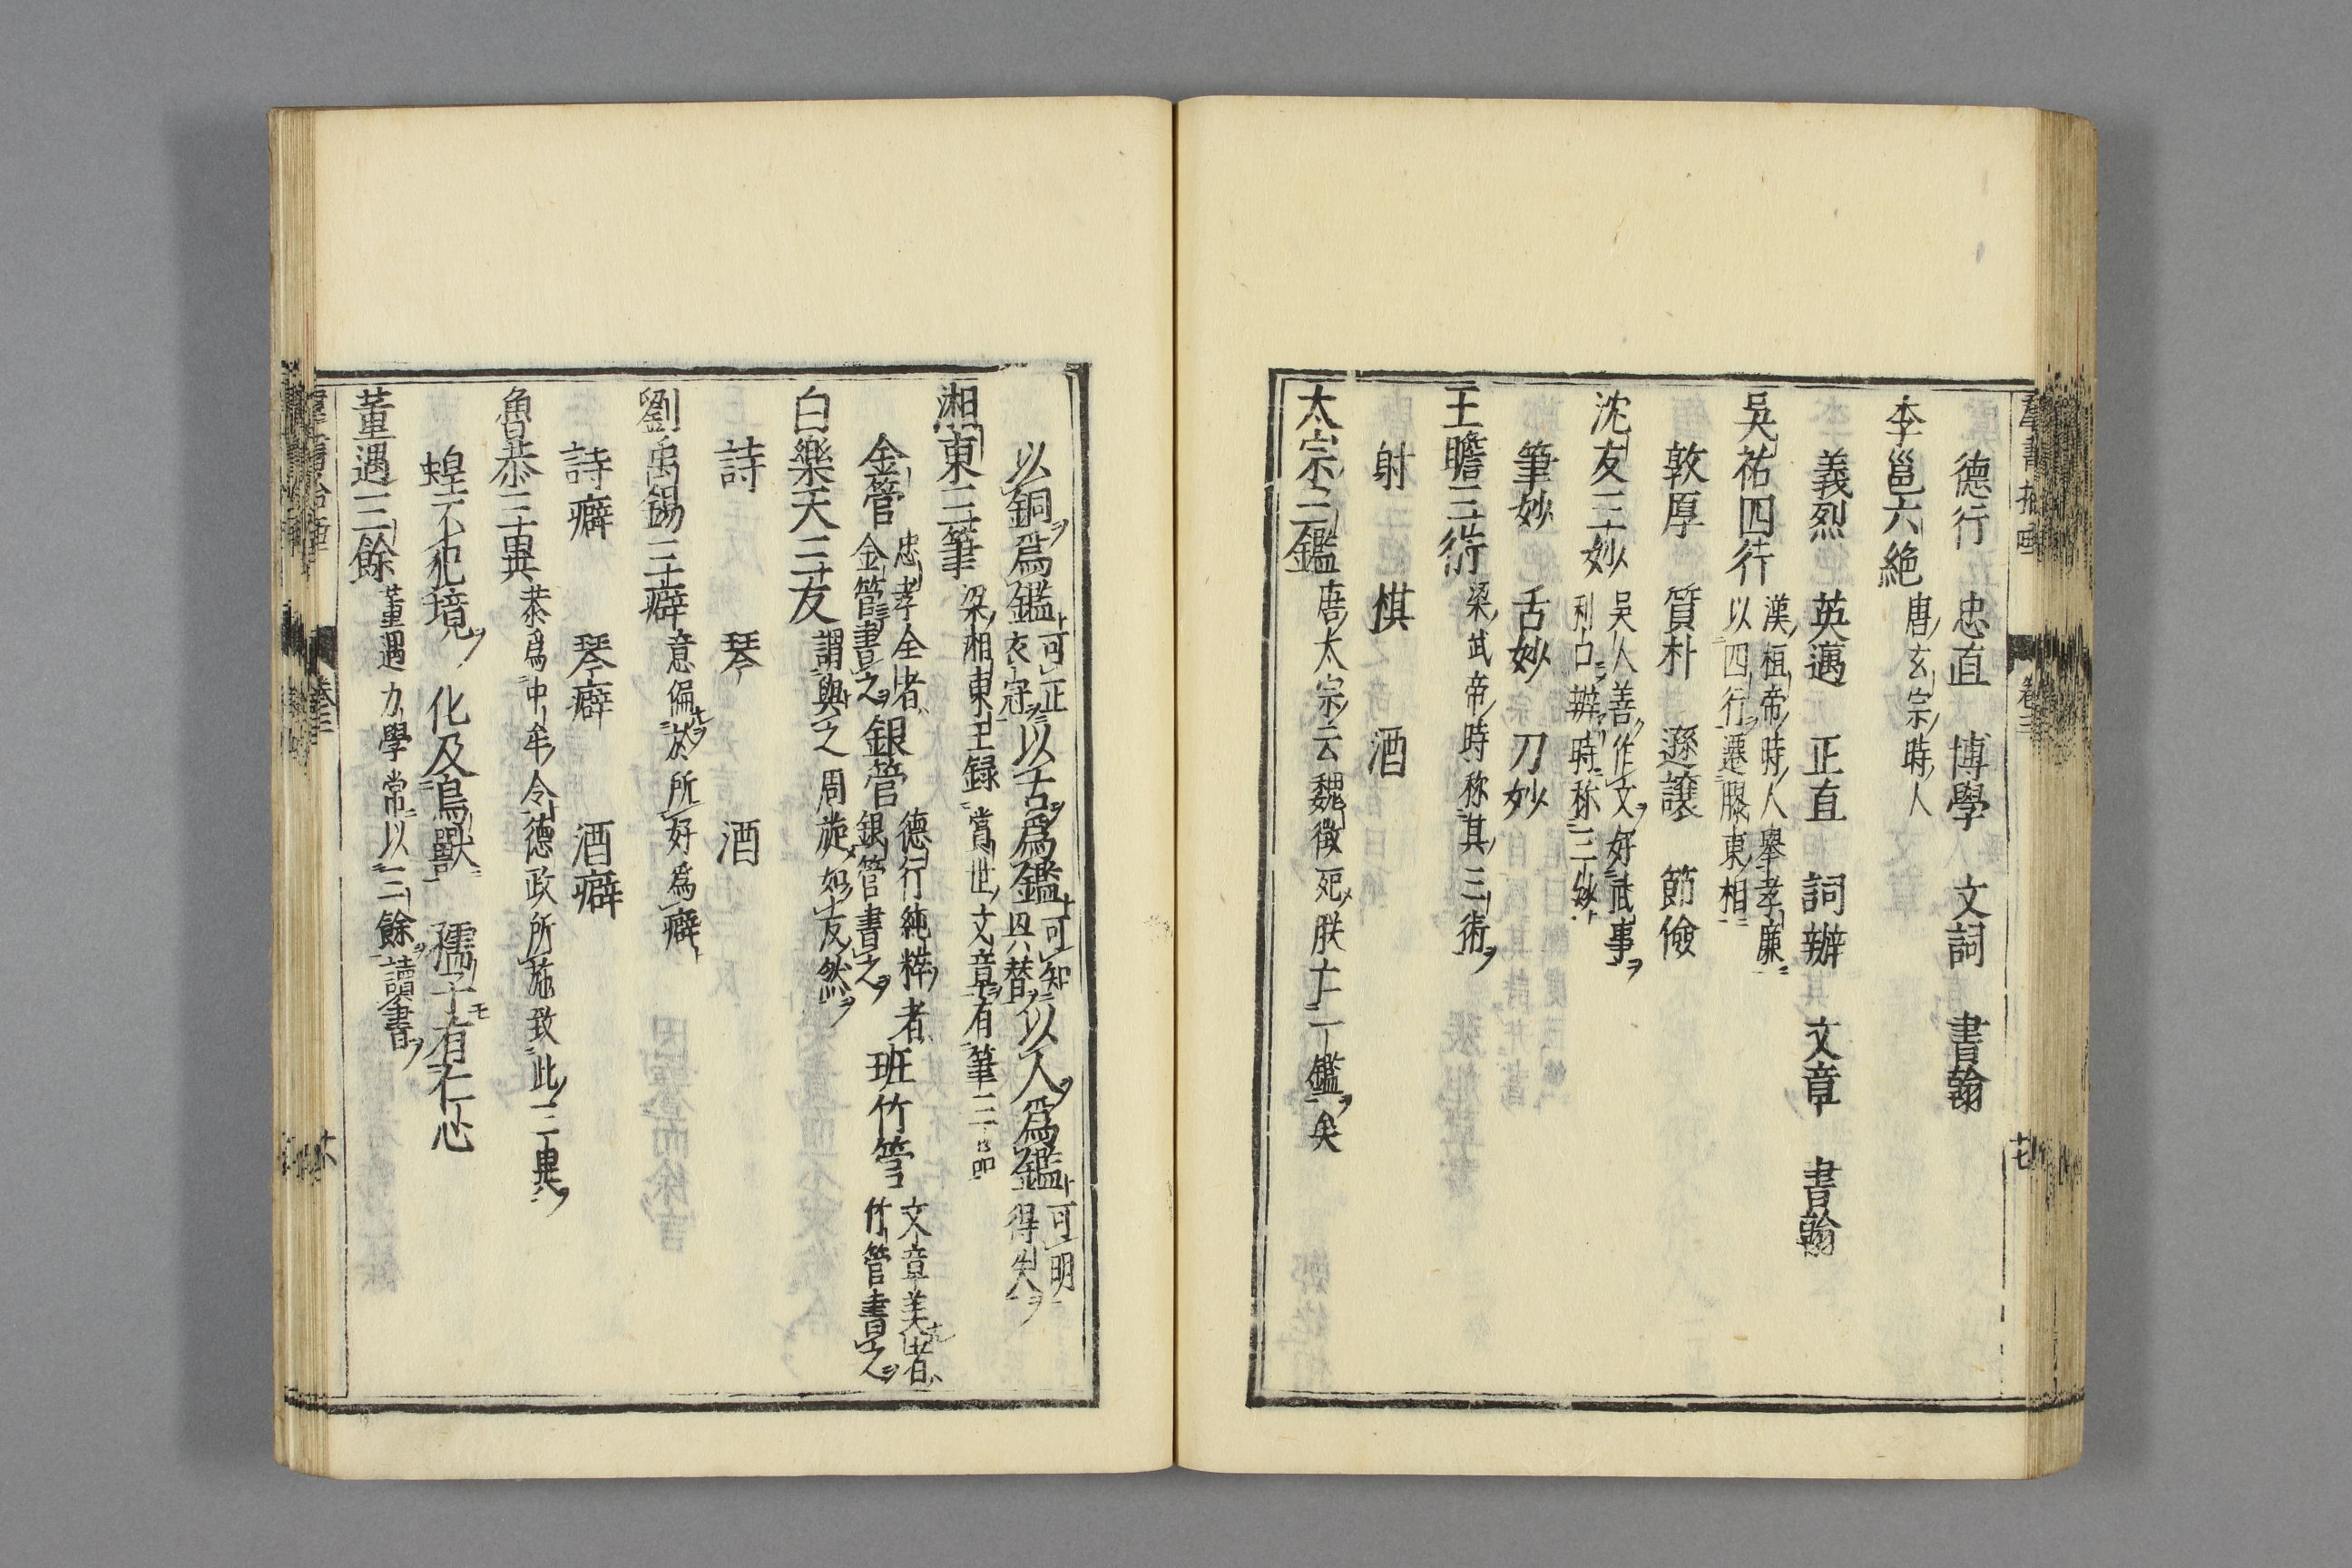 德行　忠直　博學　文詞　書翰
李邕六絶　唐玄宗時人
義烈　英邁　正直　詞辦　文章　書翰
吳祐四行　漢桓帝時人舉孝廉
以四行遷膠東相
敦厚　質朴　遜讓　節儉
沈友三妙　吳人善作文好武事
利口辦時称三妙
筆妙　舌妙　刀妙
王瞻三術　梁武帝時称其三術
射　棋　酒
太宗三鑑　唐太宗云魏徵死朕亡一鑑矣
以銅爲鑑　可正衣冠　以古爲鑑　可知興替　以人爲鑑　可明得失
湘東三筆　梁湘東王録賞世文章有筆三品
金管　忠孝全者金管書之　銀管　德行純粹者銀管書之　班竹管　文章美者竹管書之
白樂天三友　謂與之周旋如友然
詩　琴　酒
劉禹錫三癖　意偏於所好爲癖
詩癖　琴癖　酒癖
魯恭三異　恭爲中牟令德政所施致此三異
蝗不犯境　化及鳥獸　孺子有仁心
董遇三餘　董遇力學常以三餘讀書